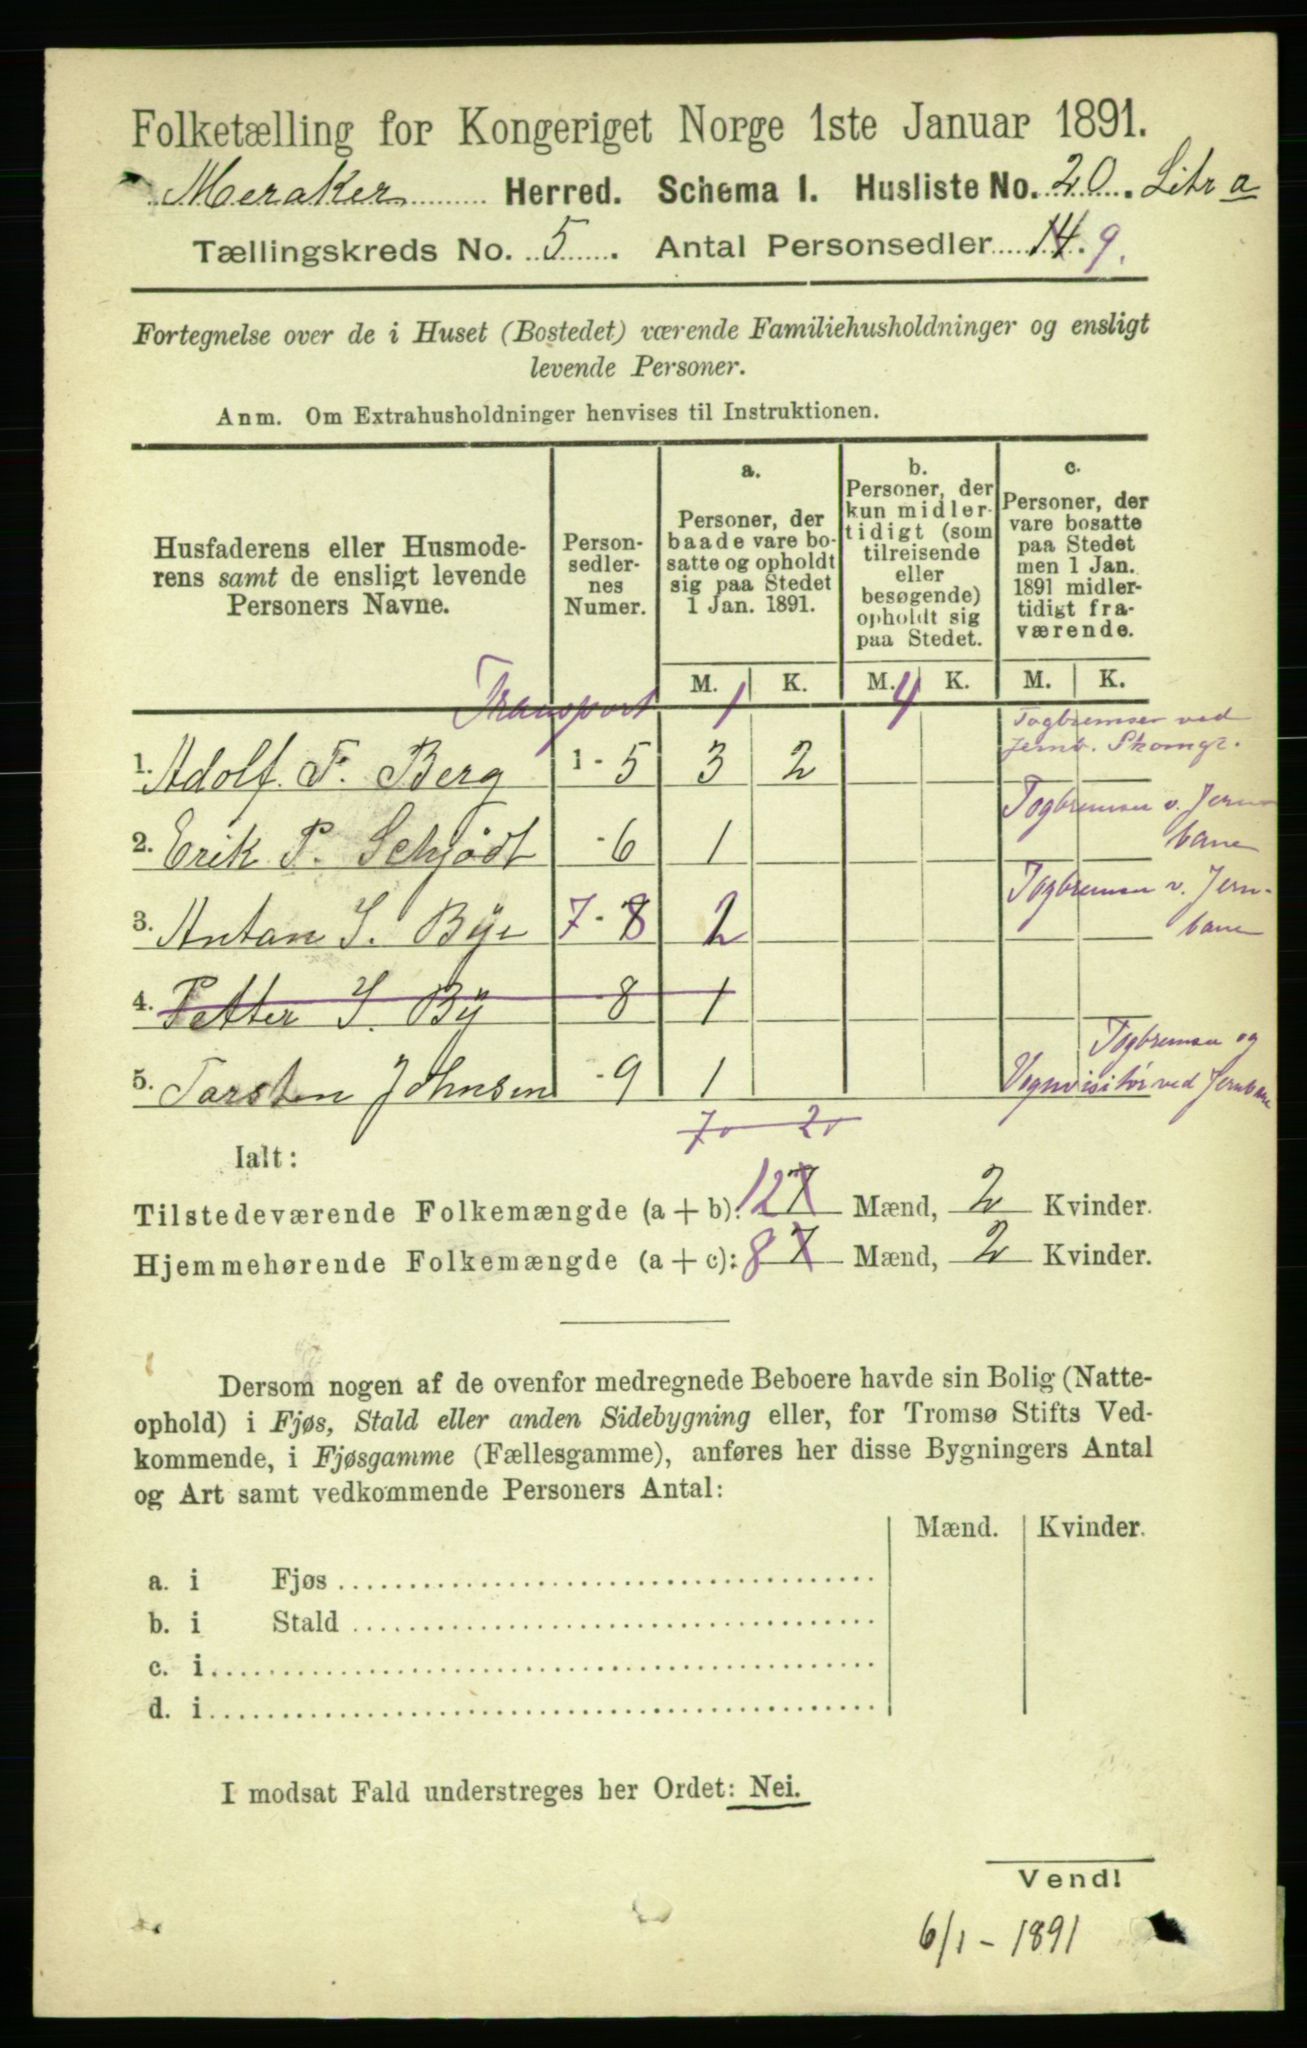 Folketælling for Kongeriget Norge 1ste Januar 1891.
Meraker Herred. Schema 1. Husliste No. 20. Litr a
Tællingskreds No. 5. Antal Personsedler 14. 9.
Fortegnelse over de i Huset (Bostedet) værende Familiehusholdninger og ensligt
levende Personer.
Anm. Om Extrahusholdninger henvises til Instruktionen.
Husfaderens eller Husmode-
rens samt de ensligt levende
Personers Navne.
Person-
sedler-
nes
Numer.
a.
Personer, der
baade vare bo-
satte og opholdt
sig paa Stedet
1 Jan. 1891.
b.
Personer, der
kun midler-
tidigt (som
tilreisende
eller
besøgende)
opholdt sig
paa Stedet.
c.
Personer, der
vare bosatte
paa Stedet
men 1 Jan.
1891 midler-
tidigt fra-
værende.
M. K. M. K. M. K.
Transport 1 4
1. Adolf. F. Berg 1 - 5 3 2 Togbremser ved
Jernb.
2. Erik P. Schjödt - 6 1 Togbremser v. Jern-
bane
3. Antan I. Bye 7 - 8 2 Togbremser v. Jern-
bane
4. Petter I. By - 8 1
5. Tarsten Johnsen - 9 1 Togbremser og
Vognvisitör ved Jernbane
7 2
Ialt:
Tilstedeværende Folkemængde (a + b): 12 7 Mænd, 2 Kvinder.
Hjemmehørende Folkemængde (a + c): 8 7 Mænd, 2 Kvinder.
Dersom nogen af de ovenfor medregnede Beboere havde sin Bolig (Natte-
ophold) i Fjøs, Stald eller anden Sidebygning eller, for Tromsø Stifts Ved-
kommende, i Fjøsgamme (Fællesgamme), anføres her disse Bygningers Antal
og Art samt vedkommende Personers Antal:
Mænd. Kvinder.
a. i Fjøs
b. i Stald
c. i
d. i
I modsat Fald understreges her Ordet: Nei.
Vend!
6/1 - 1891